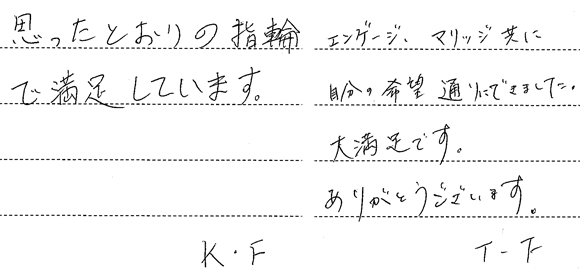 思ったとおりの指輪
で満足しています。
K.F
エンゲージ、マリッジ共に
自分の希望通りにできました。
大満足です。
ありがとうございます。
T-F